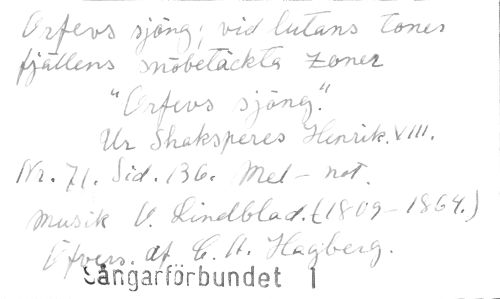 Orfevs sjöng; vid lutans toner
fjällens snöbetäckta zoner
"Orfevs sjöng."
Ur Shaksperes Henrik. VIII.
Nr. 71. Sid. 136. Mel-not.
musik O. Lindblad. (1809-1864.)
Öfvers. af C. A. Hagberg.
Sångarförbundet 1